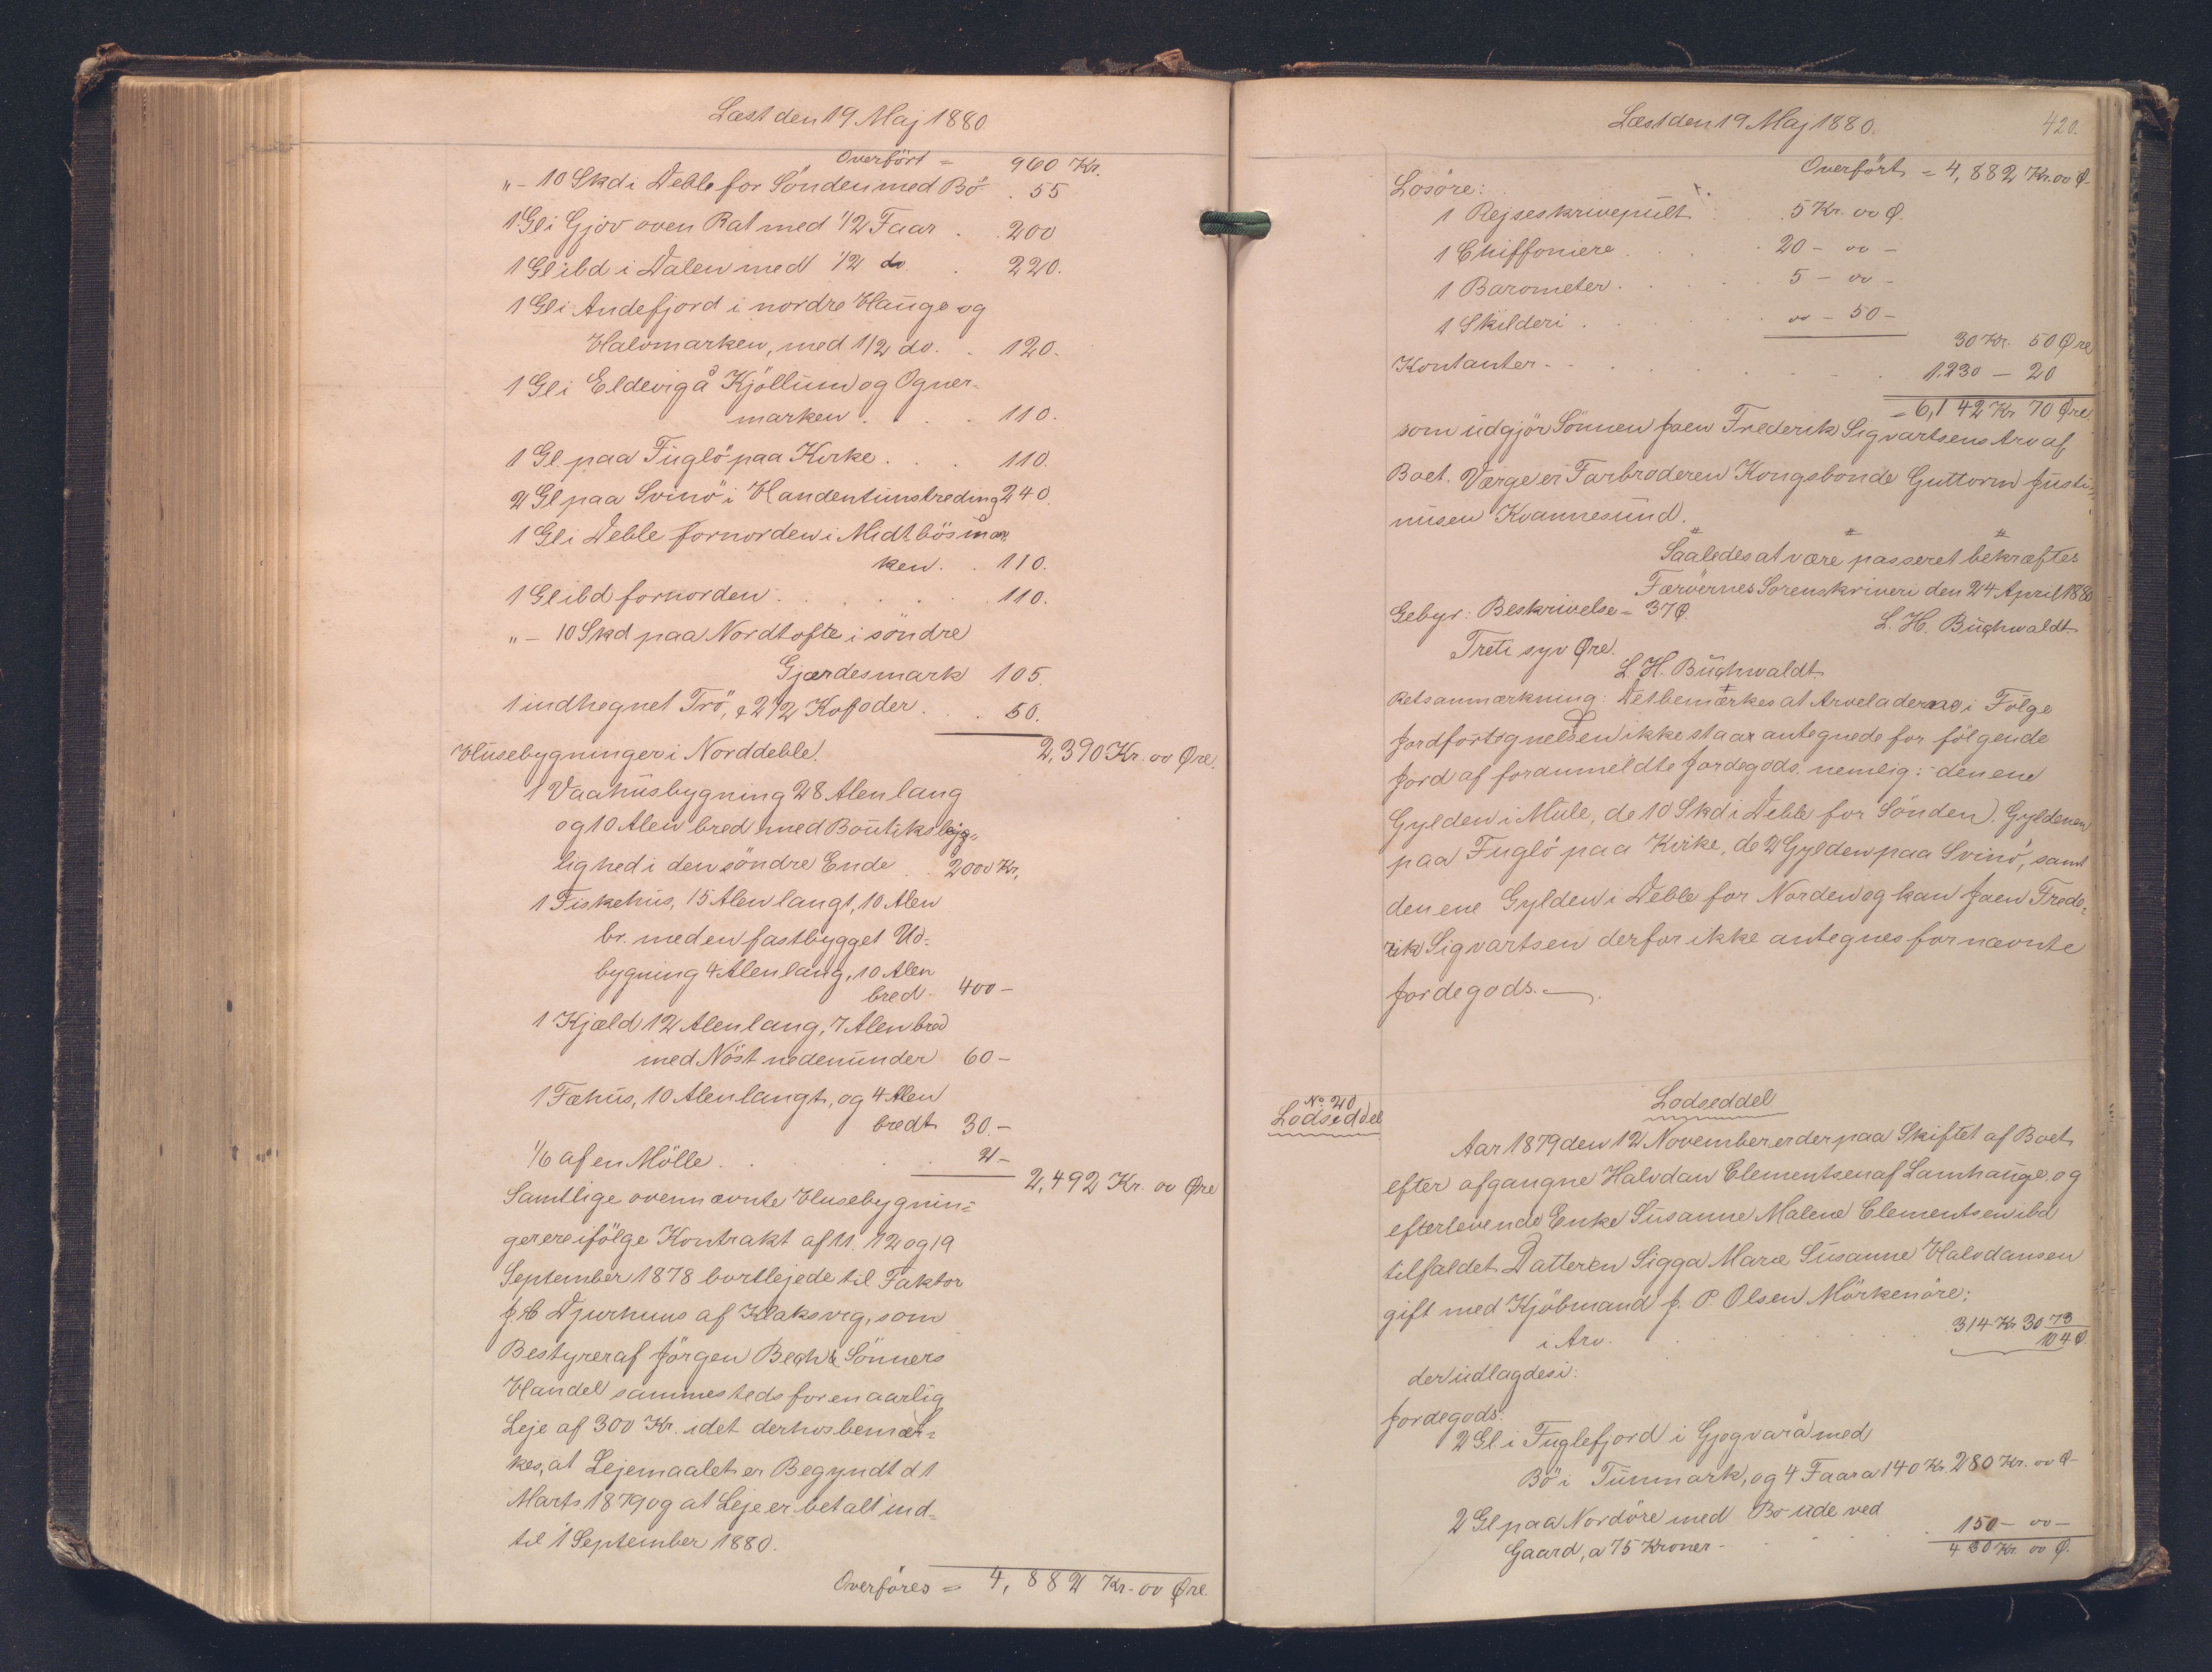 Læst den 19 Maj 1880
Overført = 960 Kr.
" - 10 Skd i Deble for Sönden med Bö . 55
1 Gl i Gjov oven Rat med 1/2 Faar . . 200
1 Gl ibd i Dalen med 1/2 do . 220.
1 Gl i Andefjord i nordre Hauge og
Halvmarken, med 1/2 do. . 120.
1 Gl i Eldevig å Kjöllum og Ogner-
marken . . . . 110.
1 Gl. paa Fuglö paa Kirke . . . 110.
2 Gl paa Svinö i Handentunstreding 240.
1 Gl i Deble fornorden i Midtbösmar
ken. . 110.
1 Gl ibd fornorden . . . . . 110.
" - 10 Skd paa Nordtofte i söndre
Gjærdesmark 105.
1 indhegnet Trö, 2 1/2 Kofoder . . . 50.
2,390 Kr. 00 Øre.
Husebygninger i Norddeble.
1 Vaahusbygning 28 Alen lang
og 10 Alen bred med Boutiksbejg-
lighed i den söndre Ende . . 2000 Kr.
1 Fiskehus, 15 Alen langt, 10 Alen
br. med en fastbygget Ud-
bygning 4 Alen lang, 10 Alen
bred. 400 -
1 Kjæld 12 Alen lang, 7 Alen bred
med Nöst nedenunder 60 -
1 Fæhus, 10 Alen langt, og 4 Alen
bredt 30. -
1/6 af en Mölle . . . . 2 -
2,492 Kr. 00 Øre
Samtlige ovennævnte Husebygnin-
ger ere ifölge Kontrakt af 11. 12 og 19
September 1878 bortlejede til Faktor
J. C Djurhuus af Klaksvig, som
Bestyrer af Jörgen Bech & Sönners
Handel sammesteds for en aarlig
Leje af 300 Kr. idet derhos bemær-
kes, at Lejemaalet er Begyndt d 1
Marts 1879 og at Leje er betalt ind-
til 1 September 1880.
Overföres = 4,882 Kr. 00 Øre.
Læst den 19 Maj 1880.
420.
Overfört = 4,882 Kr. 00 Ø-
Lösöre:
1 Rejseskrivepult . . 5 Kr. 00 Ø.
1 Chiffoniere . . . 20 - 00 -
1 Barometer . . . . 5 - 00 -
1 Skilderi . . . . 00 - 50 -
30 Kr. 50 Øre
Kontanter . . . . . 1.230 - 20
= 6,142 Kr 70 Øre
som udgjör Sönnen Joen Frederik Sigvartsens Arv af
Boet. Værge er Farbroderen Kongsbonde Guttorm Justi-
nusen Kvannesund.
Saaledes at være passeret bekræftes
Færöernes Sorenskriveri den 24 April 1880
Gebyr: Beskrivelse = 37 Ø. L. H. Buchwaldt.
Treti syv Øre.
L. H. Buchwaldt.
Retsanmærkning: Det bemærkes at Arveladeren i Fölge
Jordfortegnelsen ikke staar antegnede for fölgende
Jord af foranmeldte Jordegods, nemlig: den ene
Gylden i Mule, de 10 Skd i Deble for Sönden. Gyldenen
paa Fuglö paa Kirke, de 2 Gylden paa Svinö, samt
den ene Gylden i Deble for Norden og kan Joen Frede-
rik Sigvartsen derfor ikke antegnes for nævnte
Jordegods.
No. 20
Lodseddel
Lodseddel
Aar 1879 den 12 November er der paa Skiftet af Boet
efter afgangne Halvdan Clementsen af Lamhauge og
efterlevende Enke Susanne Malene Clementsen ibd
tilfaldet Datteren Sigga Marie Susanne Halvdansen
gift med Kjöbmand J. P. Olsen Mörkenöre;
i Arv. . . . . 314 Kr 30 73/104 Ø.
der udlagdes i:
Jordegods:
2 Gl. i Fuglefjord i Gjogvarå med
Bö i Tunmark, og 4 Faar a 140 Kr. 280 Kr. 00 Ø-
2 Gl paa Nordöre med Bö ude ved
Gaard, a 75 Kroner - . . . 150 - 00 -
430 Kr. 00 Ø.